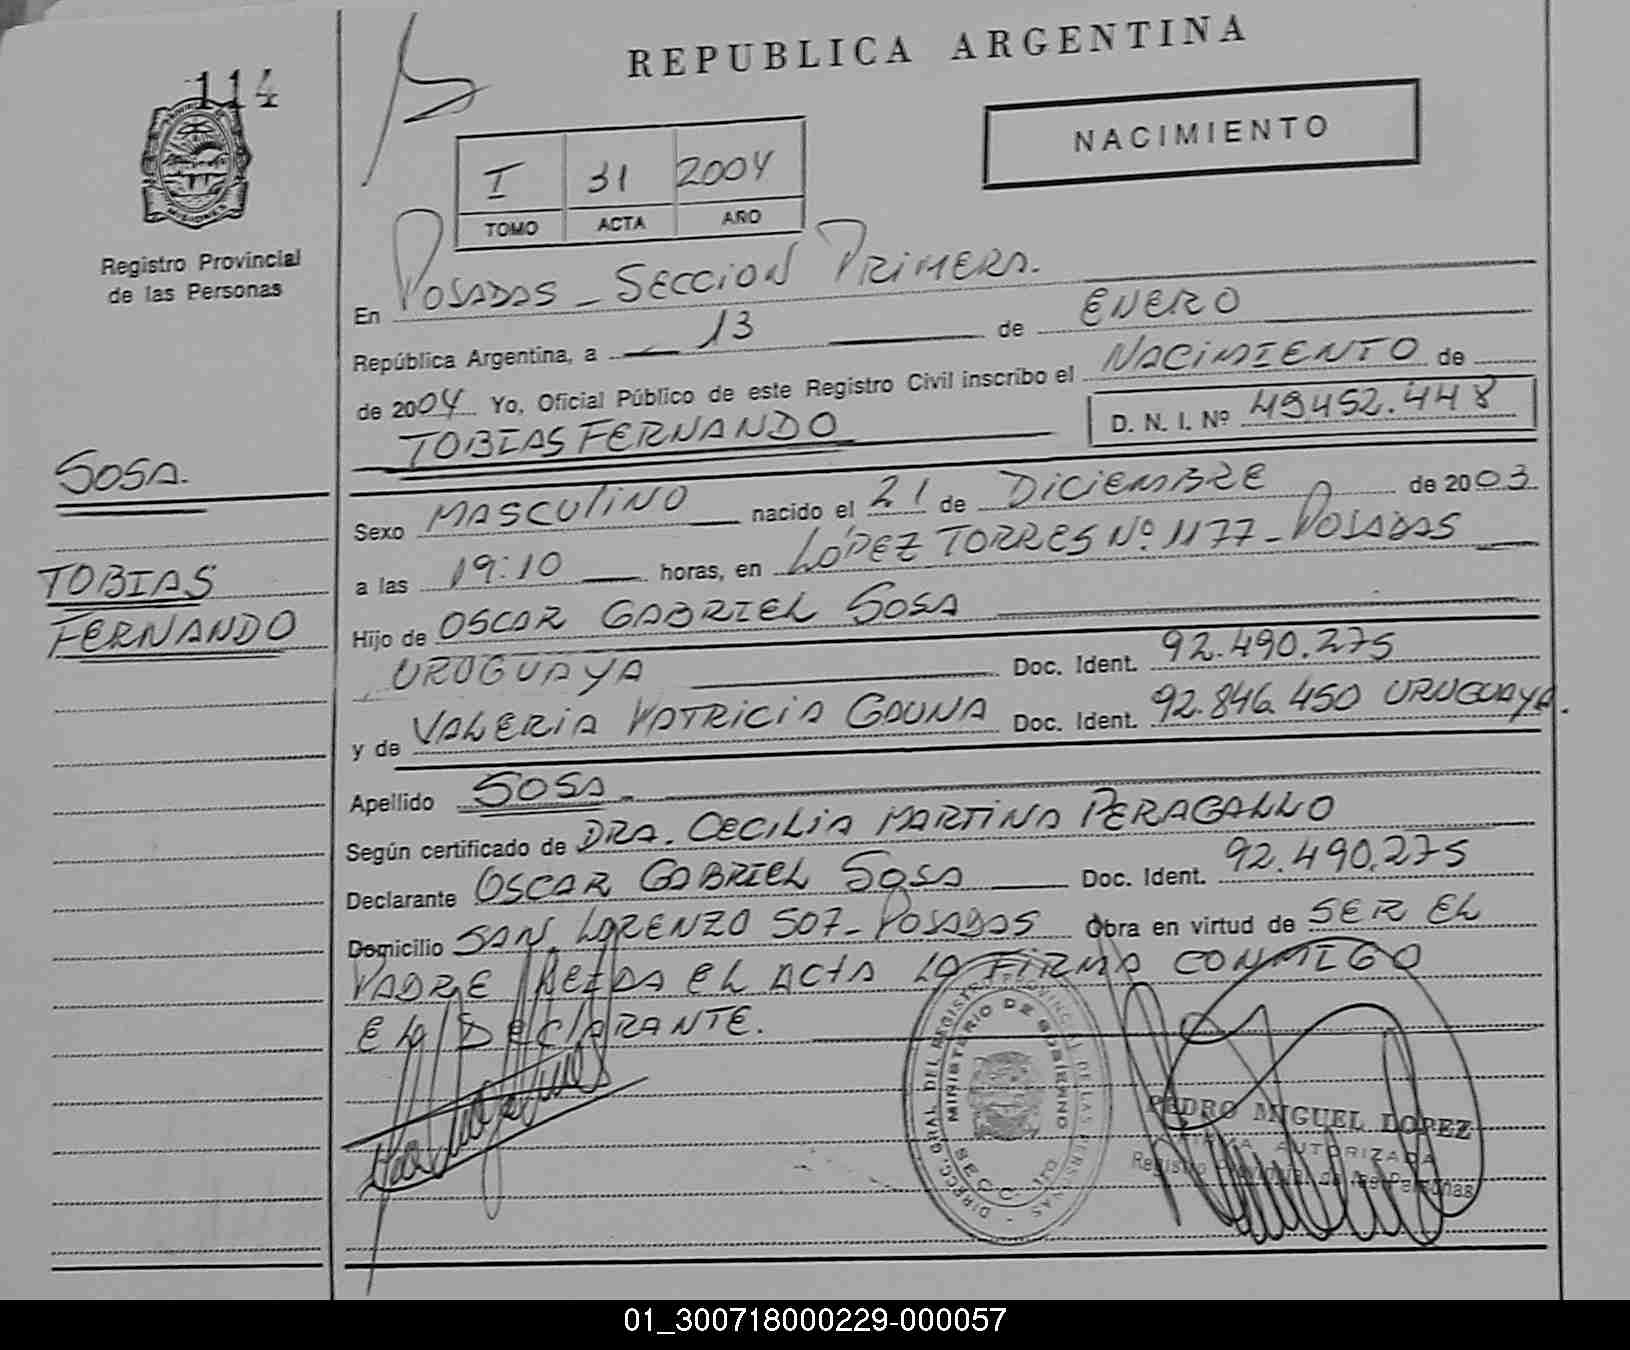 114
MISIONES
Registro Provincial
de las Personas
SOSA.
TOBIAS
FERNANDO
REPUBLICA ARGENTINA
NACIMIENTO
I 31 2004
TOMO ACTA AÑO
En POSADAS - SECCION PRIMERA.
República Argentina, a 13 de ENERO
de 2004 Yo, Oficial Público de este Registro Civil inscribo el NACIMIENTO de
TOBIAS FERNANDO D. N. I. Nº 49452.448
Sexo MASCULINO nacido el 21 de DICIEMBRE de 2003
a las 19:10 horas, en LÓPEZ TORRES Nº 1177 - POSADAS
Hijo de OSCAR GABRIEL SOSA
URUGUAYA Doc. Ident. 92.490.275
y de VALERIA PATRICIA GAUNA Doc. Ident. 92.846.450 URUGUAYA.
Apellido SOSA
Según certificado de DRA. CECILIA MARTINA PERAGALLO
Declarante OSCAR GABRIEL SOSA Doc. Ident. 92.490.275
Domicilio SAN LORENZO 507 - POSADAS Obra en virtud de SER EL
PADRE LEIDA EL ACTA LA FIRMA CONMIGO
EL DECLARANTE.
DIREC. GRAL. DEL REGISTRO PROVINCIAL DE LAS PERSONAS
MINISTERIO DE GOBIERNO
PEDRO MIGUEL LOPEZ
AUTORIZADA
Registro Provincial de las Personas
01_300718000229-000057